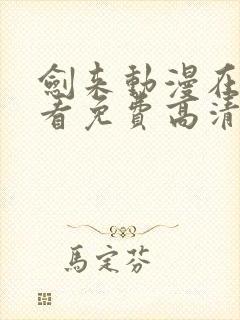 劍来動漫在
看免費高清
馬定芬